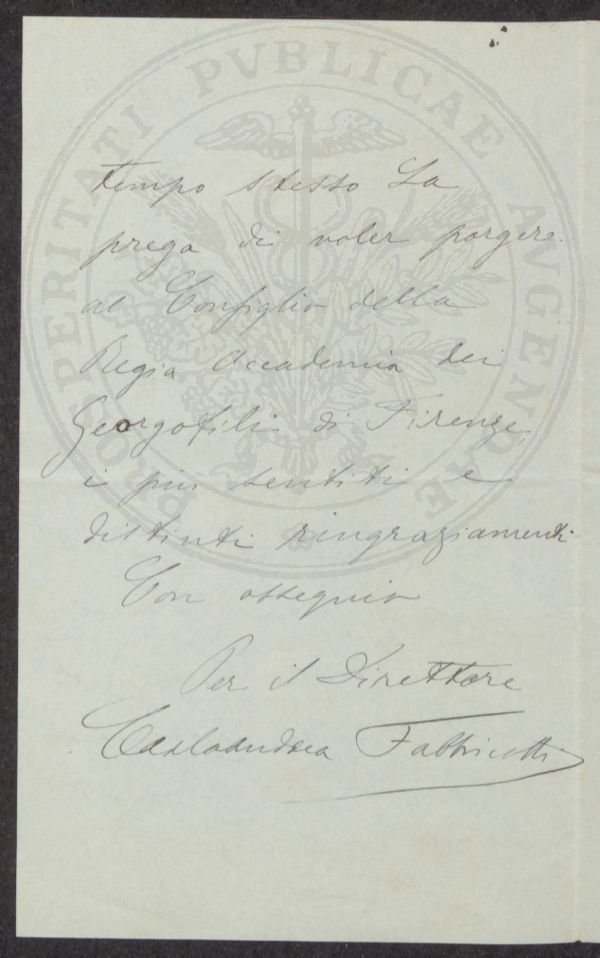 tempo stesso La
prega di voler porgere
al Consiglio della
Regia Accademia dei
Georgofili di Firenze,
i più sentiti e
distinti ringraziamenti
Con ossequio
Per il Direttore
Carloandrea Fabbricotti
PROSPERITATI PVBLICAE AVGENDAE